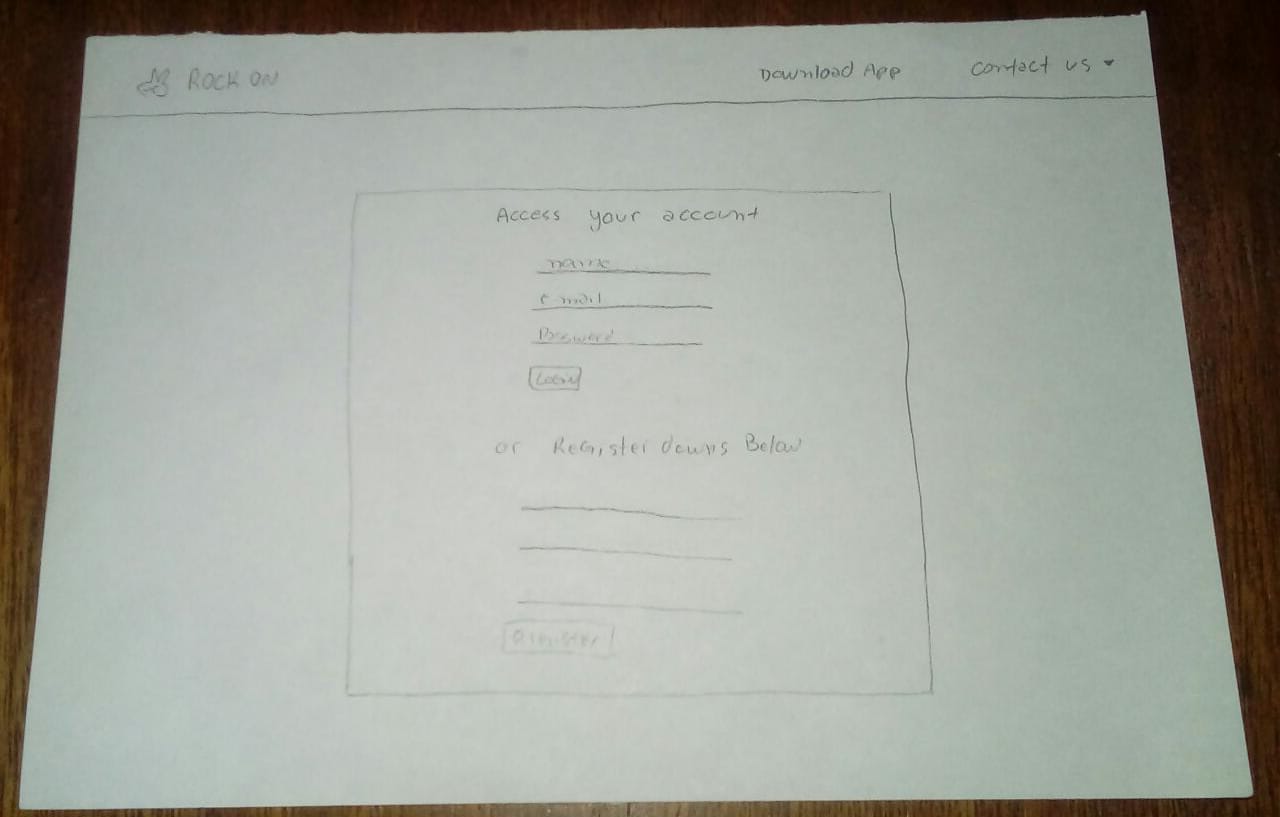 ROCK ON
Download App
Contact us
Access your account
name
email
Password
Login
or Register downs Below
Register